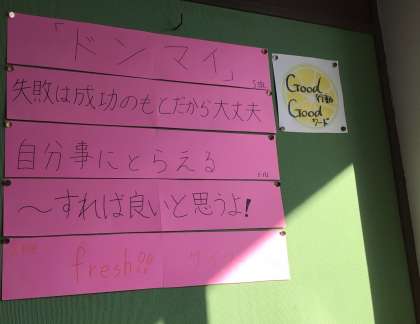 「ドンマイ」
失敗は成功のもとだから大丈夫
自分事にとらえる
〜すれば良いと思うよ!
fresh!!
Good
行動
Good
ワード